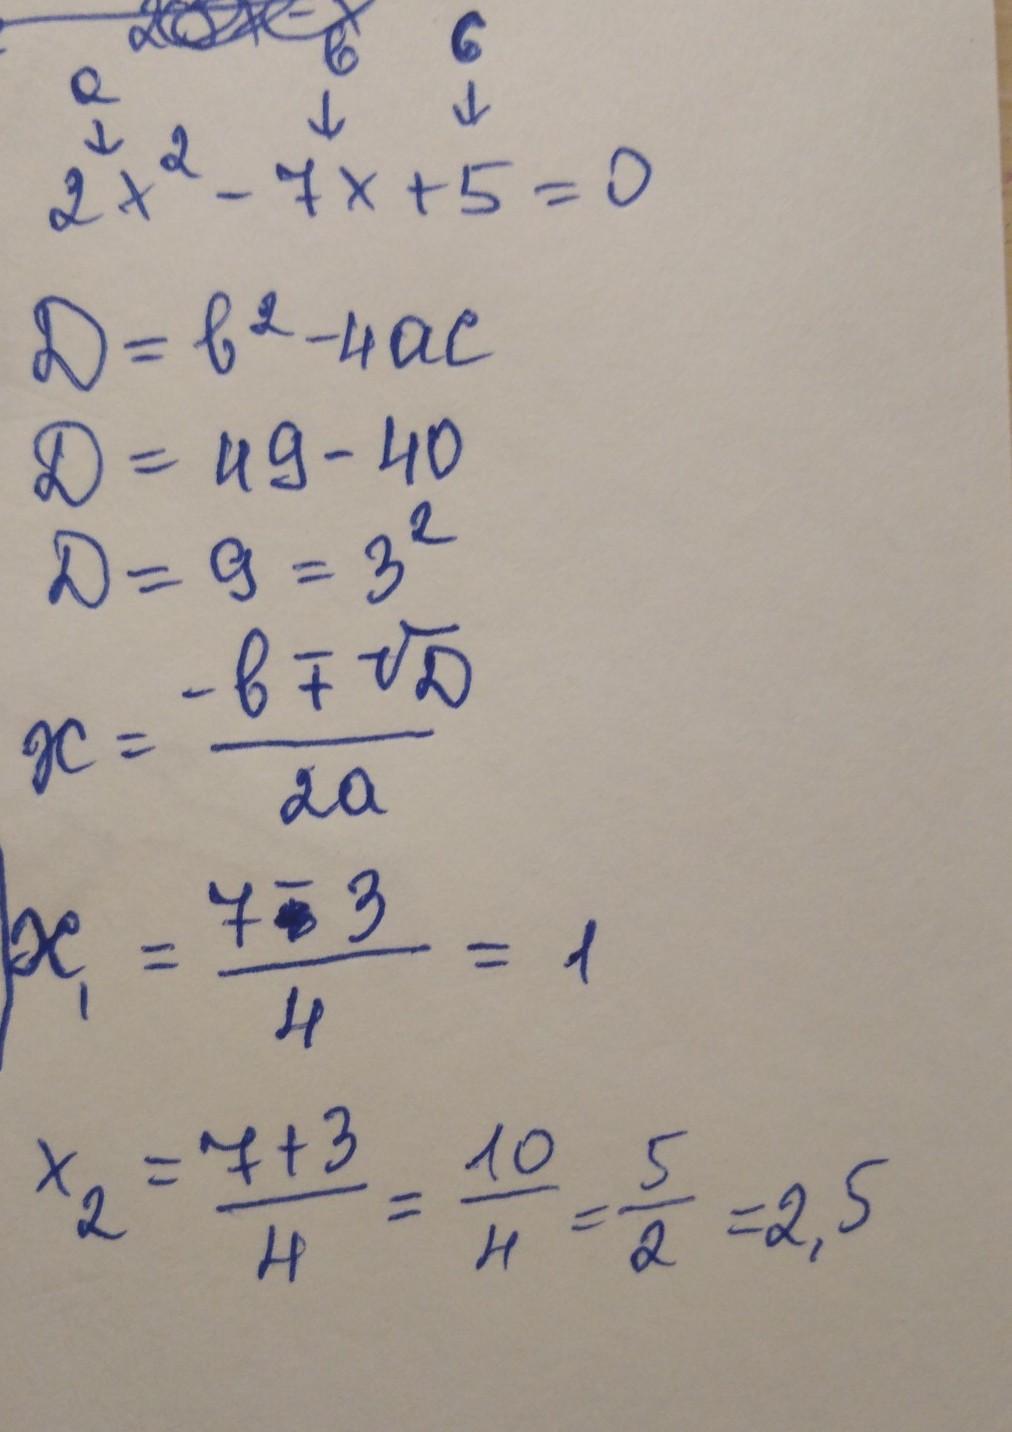 a в с
↓ ↓ ↓
2x² - 7x + 5 = 0
D = в² - 4ac
D = 49 - 40
D = 9 = 3²
x = (-в ∓ √D) / 2a
x₁ = (7 - 3) / 4 = 1
x₂ = (7 + 3) / 4 = 10 / 4 = 5 / 2 = 2,5